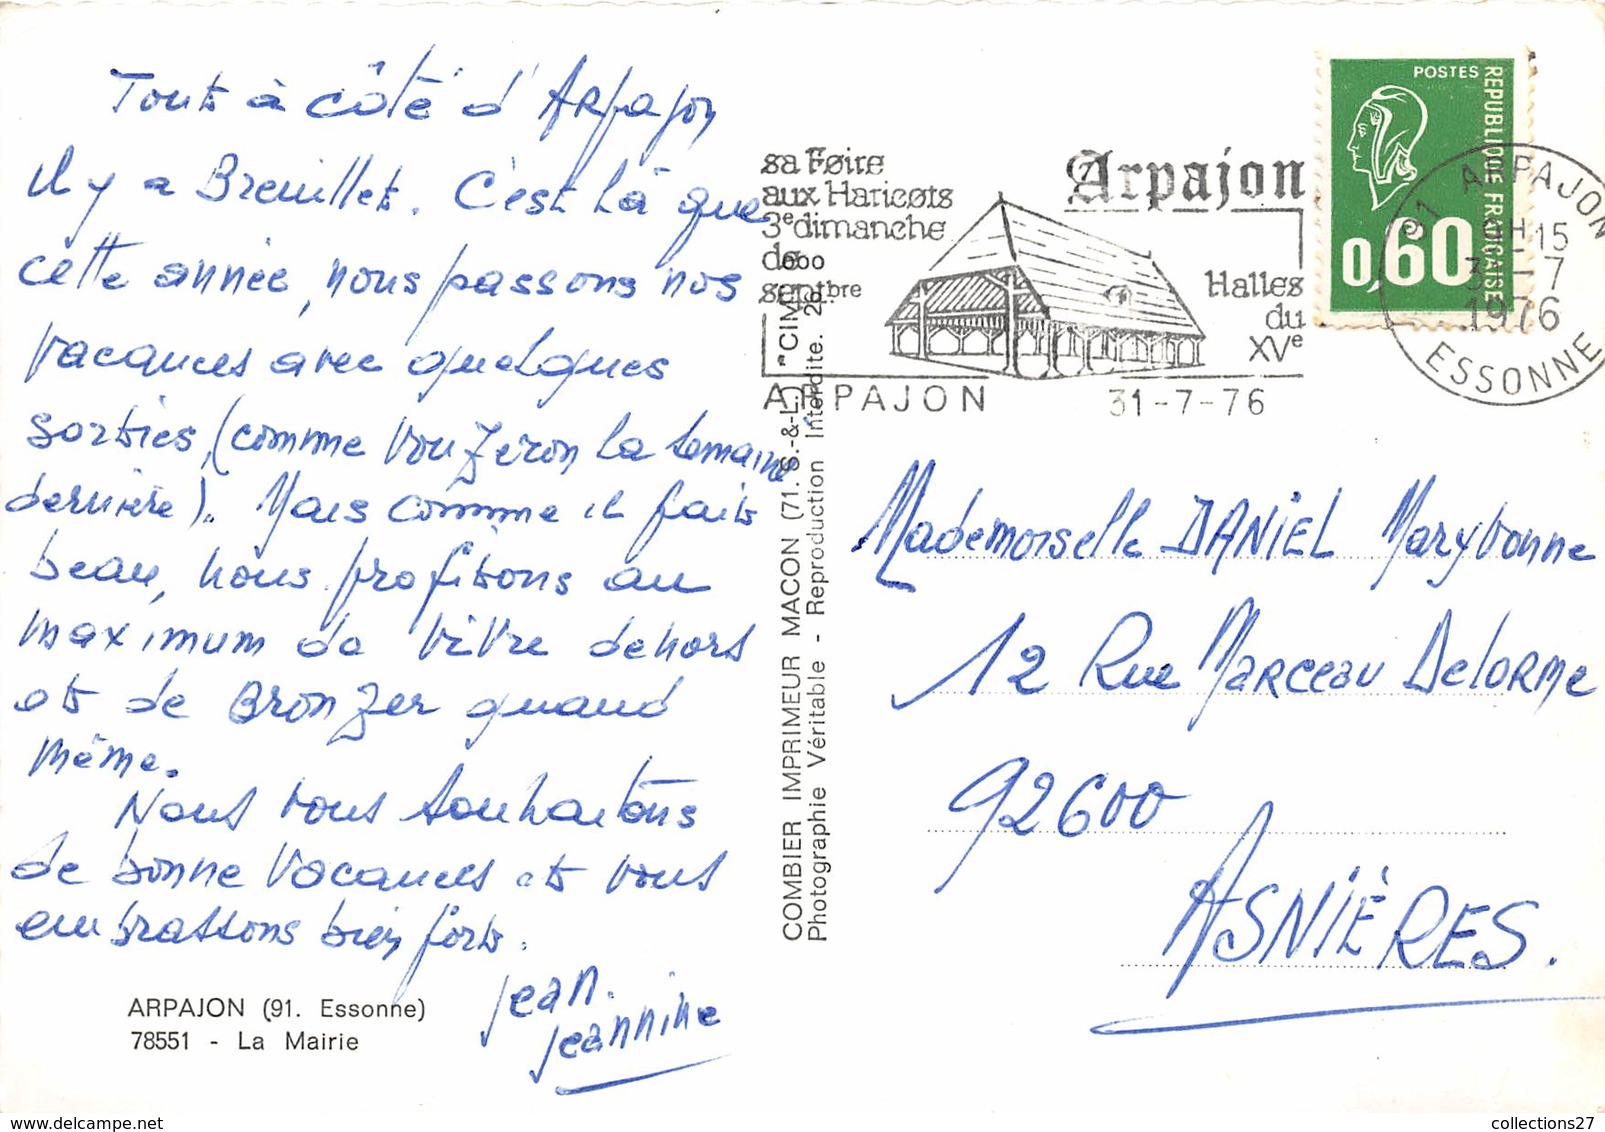 Tout à côté d'Arpajon
il y a Breuillet. C'est là que
cette année, nous passons nos
vacances avec quelques
sorties, (comme Vouzeron la semaine
dernière). Mais comme il fait
beau, nous profitons au
maximum de vivre dehors
et de Bronzer quand
même.
Nous vous souhaitons
de bonne vacances et vous
embrassons bien fort.
Jean.
Jeannine
ARPAJON (91. Essonne)
78551 - La Mairie
COMBIER IMPRIMEUR MACON (71. S.-&-L.) "CIM"
Photographie Véritable - Reproduction Interdite.
sa Foire
aux Haricots
3e dimanche
de
septbre
Arpajon
Halles
du
XVe
ARPAJON 31-7-76
POSTES
REPUBLIQUE FRANÇAISE
0,60
91 ARPAJON
9H15
31-7
1976
ESSONNE
Mademoiselle DANIEL Maryvonne
12 Rue Marceau Delorme
92600
ASNIÈRES.
collections27